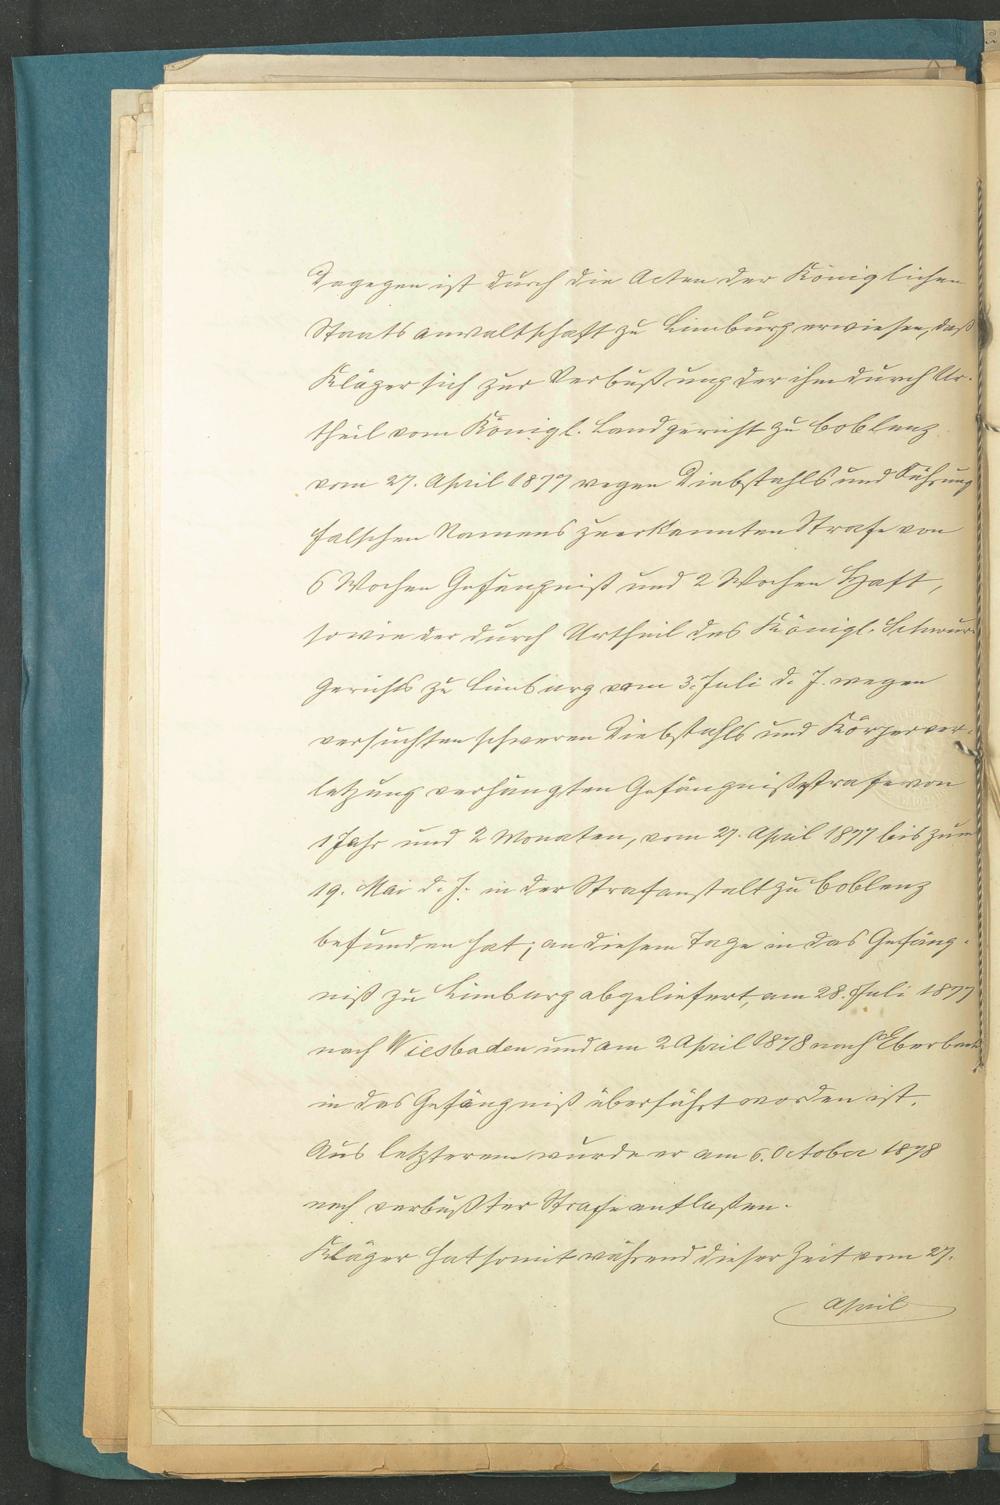 Dagegen ist durch die Acten der Königlichen
Staatsanwaltschaft zu Limburg erwiesen, daß
Kläger sich zur Verbüßung der ihm durch Ur-
theil vom Königl. Landgericht zu Coblenz
vom 27. April 1877 wegen Diebstahls und Führung
falschen Namens zuerkannten Strafe von
6 Wochen Gefängniß und 2 Wochen Haft,
sowie der durch Urtheil des Königl. Schwur-
gerichts zu Limburg vom 3. Juli d. J. wegen
versuchten schweren Diebstahls und Körperver-
letzung verhängten Gefängnißstrafe von
1 Jahr und 2 Monaten, vom 27. April 1877 bis zum
19. Mai d. J. in der Strafanstalt zu Coblenz
befunden hat; an diesem Tage in das Gefäng-
niß zu Limburg abgeliefert, am 28. Juli 1877
nach Wiesbaden und am 2 April 1878 nach Eberbach
in das Gefängniß überführt worden ist.
Aus letzterem wurde er am 6. October 1878
nach verbüßter Strafe entlaßen.
Kläger hat somit während dieser Zeit vom 27.
April